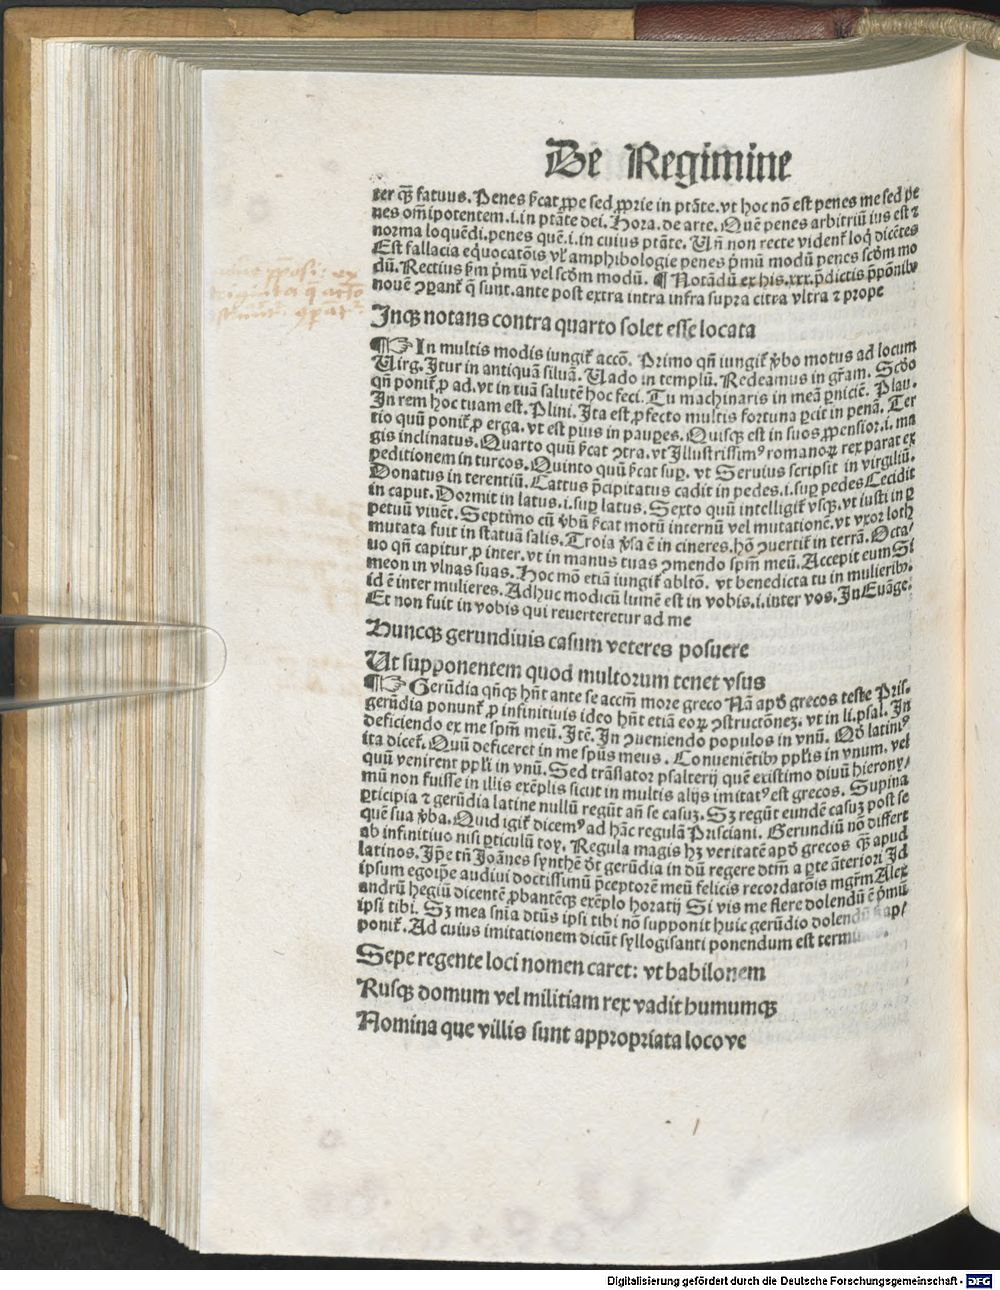 De Regimine
ter qȝ fatuus. Penes ſ̄cat ꝓpe ſed ꝓprie in ptāte. vt hoc nō eſt penes me ſed pe
nes om̄ipotentem .i. in ptāte dei. Hora. de arte. Quē penes arbitriū ius eſt ⁊
norma loquēdi. penes quē .i. in cuius ptāte. Vn̄ non recte vident̃ loq̇ dicētes
Eſt fallacia equocatōis vl̓ amphibologie penes p̄mū modū penes ſcd̓m mo
dū. Rectius ẜm p̄mū vel ſcd̓m modū. ¶ Notādū ex his .xxx. p̄dictis p̄pōnibꝰ
nouē ꝯparāt̃ q̄ ſunt. ante poſt extra intra infra ſupra citra vltra ⁊ prope
Inqȝ notans contra quarto ſolet eſſe locata
¶☞ In multis modis iungit̃ accō. Primo qn̄ iungit̃ v̓bo motus ad locum
Virg. Itur in antiquā ſiluā. Vado in templū. Redeamus in gr̄am. Scd̓o
qn̄ ponit̃ ꝓ ad. vt in tuā ſalutē hoc feci. Tu machinaris in meā ꝑniciē. Plau.
In rem hoc tuam eſt. Plini. Ita eſt ꝓfecto multis fortuna ꝑcit in penā. Ter
tio quū ponit̃ ꝓ erga. vt eſt pius in pauꝑes. Quiſqȝ eſt in ſuos ꝓpenſior .i. ma
gis inclinatus. Quarto quū ſ̄cat ꝯtra. vt Illuſtriſſimꝰ romanoꝝ rex parat ex
peditionem in turcos. Quinto quū ſ̄cat ſuꝑ. vt Seruius ſcripſit in virgiliū.
Donatus in terentiū. Cattus p̄cipitatus cadit in pedes .i. ſuꝑ pedes Cecidit
in caput. Dormit in latus .i. ſuꝑ latus. Sexto quū intelligit̃ vſqȝ. vt iuſti in ꝑ
petuū viuēt. Septimo cū v̓bū ſ̄cat motū internū vel mutationē. vt vxor loth
mutata fuit in ſtatuā ſalis. Troia v̓ſa ē in cineres. hō ꝯuertit̃ in terrā. Octa/
uo qn̄ capitur ꝓ inter. vt in manus tuas ꝯmendo ſpm̄ meū. Accepit eum Si
meon in vlnas ſuas. Hoc mō etiā iungit̃ abltō. vt benedicta tu in mulieribꝰ.
id ē inter mulieres. Adhuc modicū lumē eſt in vobis .i. inter vos. In Euāge.
Et non fuit in vobis qui reuerteretur ad me
Huncqȝ gerundiuis caſum veteres poſuere
Ut ſupponentem quod multorum tenet vſus
¶☞ Gerūdia qn̄qȝ hn̄t ante ſe accm̄ more greco Nā apd̓ grecos teſte Priſ.
gerūdia ponunt̃ ꝓ infinitiuis ideo hn̄t etiā eoꝝ ꝯſtructōneȝ. vt in li. pſal. In
deficiendo ex me ſpm̄ meū. Itē. In ꝯueniendo populos in vnū. Qd̓ latinꝰ
ita dicet̃. Quū deficeret in me ſpūs meus. Conuenietibꝰ ppl̓is in vnum. vel
quū venirent ppl̓i in vnū. Sed trāſlator pſalterij quē exiſtimo diuū hierony/
mū non fuiſſe in illis exēplis ſicut in multis alijs imitatꝰ eſt grecos. Supina
ꝑticipia ⁊ gerūdia latine nullū regūt an̄ ſe caſuȝ. Sȝ regūt eundē caſuȝ poſt ſe
quē ſua v̓ba. Quid igit̃ dicemꝰ ad hāc regulā Priſciani. Gerundiū nō differt
ab infinitiuo niſi ꝑticulū toy. Regula magis hȝ veritatē apd̓ grecos qȝ apud
latinos. Ip̄e tn̄ Joānes ſynthē d̓t gerūdia in dū regere dtm̄ a ꝑte āteriori Id
ipſum egoip̄e audiui doctiſſimū p̄ceptorē meū felicis recordatōis mgr̄m Alex
andrū hegiū dicentē ꝓbantēqȝ exēplo horatij Si vis me flere dolendū ē p̄mū
ipſi tibi. Sȝ mea ſnīa dtūs ipſi tibi nō ſupponit huic gerūdio dolendū ſ̄ ap/
ponit̃. Ad cuius imitationem dicūt ſyllogiſanti ponendum eſt
Sepe regente loci nomen caret: vt babilonem
Ruſqȝ domum vel militiam rex vadit humumqȝ
Nomina que villis ſunt appropriata locove
Digitalisierung gefördert durch die Deutsche Forschungsgemeinschaft - DFG